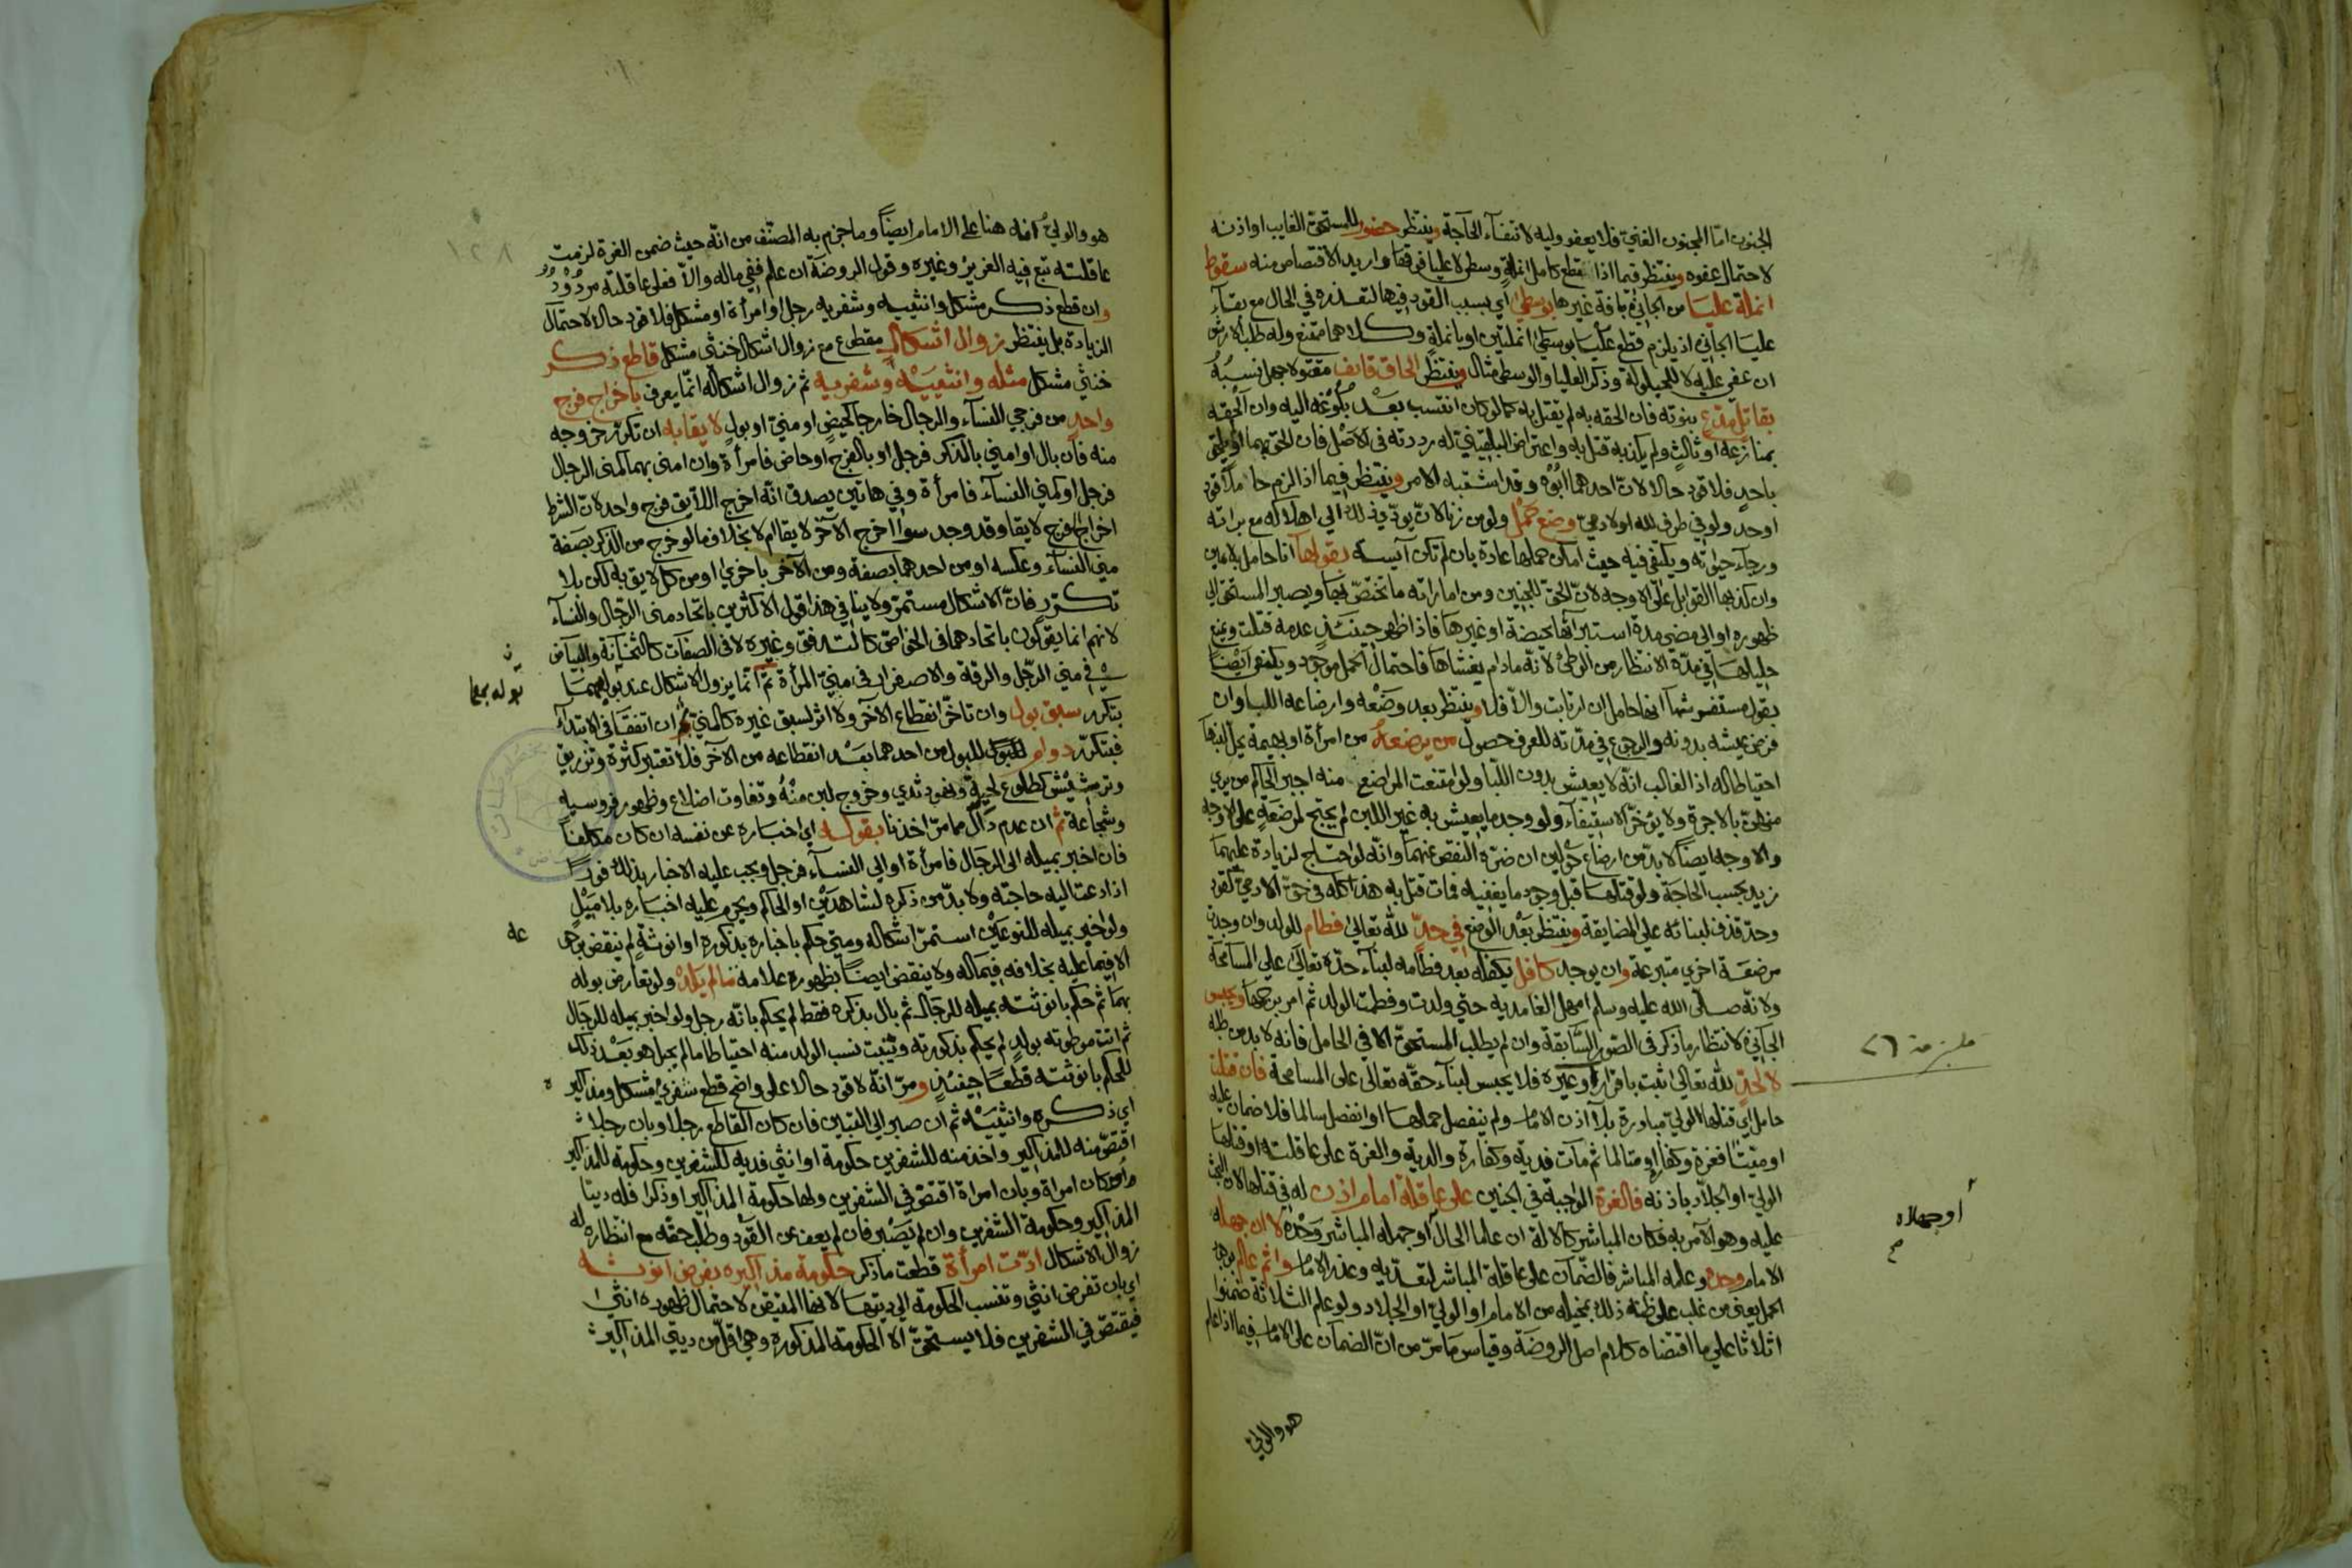 المجنون اما المجنون الغني فلا يعفو وليه لانتفاء الحاجة وينتظر حضور المستحق الغايب او اذنه
لاحتمال عفوه وينتظر فيما اذا قطع كامل انملة وسطى لا عليا فوقها واريد الاقتصاص منه سقوط
انملة عليا من الجاني بافة غيرها بوسطى اي بسبب القود فيها لتعذره في الحال مع بقاء
عليا الجاني اذ يلزم قطع عليا بوسطى انملتين او بانملة وكلاهما ممتنع وله طلب الارش
ان عفى عليه لا للحيلولة وذكر العليا والوسطى مثال وينتظر الحاق قايف مقتولا جهل نسبه
بقاتل مدع بنوته فان الحقه به لم يقتل به كما لو كان انتسب بعد بلوغه اليه وان الحقه
بمنازعه او ثالث ولم يكذبه قتل به واعتراض البلقيني له رددته في الاصل فان الحق بهما او يلحق
باحد فلا قود حالا لان احدهما ابوه وقد اشتبه الامر وينتظر فيما اذا لزم حاملا قود
او حد ولو في طرف لله او لادمي وضع حمل ولو من زنا لان يودي ذلك الى اهلاكه مع براته
ورجاء حيوته ويكتفى فيه حيث امكن حملها عادة بان لم تكن آيسة بقولها انا حامل بلا يمين
وان كذبها القوابل على الاوجه لان الحق للجنين ومن اماراته ما تختص بها ويصبر المستحق الى
ظهوره او الى مضي مدة استبرائها بحيضة او غيرها فاذا ظهر حينئذ عدمه قتلت ويمنع
حليلها في مدة الانتظار من الوطئ لانه ما دام يغشاها فاحتمال الحمل موجود ويكتفى ايضا
بقول مستفرشها انها حامل ان ارتابت والا فلا وينتظر بعد وضعه وارضاعه اللبا وان
فرض عيشه بدونه والرجوع في مدته للعرف حصول من يرضعه من امرأة او بهيمة يحل لبنها
احتياطا له اذ الغالب انه لا يعيش بدون اللبا ولو امتنعت المراضع منه اجبر الحاكم من يرى
منهن بالاجرة ولا يؤخر الاستيفاء ولو وجد ما يعيش به غير اللبن لم يحتج لمرضعة على الاوجه
والاوجه ايضا لا بد من ارضاع حولين ان ضره النقص عنهما وانه لو احتاج لزيادة عليهما
زيد بحسب الحاجة ولو قتلها قبل وجود ما يغنيه فمات قتل به هذا كله في حق الادمي كقود
وحد قذف لبنائه على المضايقة وينتظر بعد الوضع في حد لله تعالى فطام للولد وان وجدت
مرضعة اخرى متبرعة وان يوجد كافل يكفله بعد فطامه لبناء حده تعالى على المسامحة
ولانه صلى الله عليه وسلم امهل الغامدية حتى ولدت وفطمت الولد ثم امر برجمها ويحبس
الجاني لانتظار ما ذكر في الصور السابقة وان لم يطلب المستحق الا في الحامل فانه لا بد من طلبه
لا لحد لله تعالى ثبت باقرار او غيره فلا يحبس لبناء حقه تعالى على المسامحة فان قتلت
حامل اي قتلها الولي مبادرة بلا اذن الامام ولم ينفصل حملها او انفصل سالما فلا ضمان عليه
او ميتا فغرة وكفارة او متالما ثم مات فدية وكفارة والدية والغرة على عاقلته او قتلها
الولي او الجلاد باذنه فالغرة الواجبة في الجنين على عاقلة امام اذن له في قتلها لان البحث
عليه وهو الآمر به فكان المباشر كالالة ان علما الحال او جهله المباشر وحده لا ان جهله
الامام وحده وعلمه المباشر فالضمان على عاقلة المباشر لتعديه وعذر الامام واثم عالم بوجود
الحمل يعني من غلب على ظنه ذلك بمخيله من الامام او الولي او الجلاد ولو علم الثلاثة ضمنوا
اثلاثا على ما اقتضاه كلام اصل الروضة وقياس ما مر من ان الضمان على الامام فيما اذا علم
هو والولي
ملزمة ٢٦
أو جهلاه
صح
١٢٨
هو والولي انه هنا على الامام ايضا وما جزم به المصنف من انه حيث ضمن الغرة لزمت
عاقلته تبع فيه العزيز وغيره وقول الروضة ان علم ففي ماله والا فعلى عاقلته مردود
وان قطع ذكر مشكل وانثييه وشفريه رجل او امرأة او مشكل فلا قود حالا لاحتمال
الزيادة بل ينتظر زوال اشكال مقطوع مع زوال اشكال خنثى مشكل قاطع ذكر
خنثى مشكل مثله وانثييه وشفريه ثم زوال اشكاله انما يعرف باخراج فرج
واحد من فرجي النساء والرجال خارجا كحيض او مني او بول لا يقابه ان تكرر خروجه
منه فان بال او امنى بالذكر فرجل او بالفرج او حاض فامرأة وان امنى بهما كمني الرجال
فرجل او كمني النساء فامرأة وفي هاتين يصدق انه اخرج اللايق فرج واحد لان الشرط
اخراج فرج لايقا وقد وجد سواء اخرج الآخر لايقا ام لا بخلاف ما لو خرج من الذكر بصفة
مني النساء وعكسه او من احدهما بصفة ومن الآخر باخرى او من كل لايق به لكن بلا
تكرر فان الاشكال مستمر ولا ينافي هذا قول الاكثرين باتحاد مني الرجال والنساء
لانهم انما يقولون باتحادهما في الخواص كالتدفق وغيره لا في الصفات كالثخانة والبياض
في مني الرجل والرقة والاصفرار في مني المرأة ثم انما يزول الاشكال عند بوله بهما
بتكرر سبق بول وان تاخر انقطاع الآخر ولا اثر لسبق غيره كالمني ثم ان اتفقا في الابتداء
فبتكرر دوام للبول من احدهما بعد انقطاعه من الآخر فلا تعتبر كثرة وتزريق
وترشيش كطلوع لحية ونهود ثدي وخروج لبن منه وتفاوت اضلاع وظهور فروسية
وشجاعة ثم ان عدم دال مما مر اخذنا بقوله اي اخباره عن نفسه ان كان مكلفا
فان اخبر بميله الى الرجال فامرأة او الى النساء فرجل ويجب عليه الاخبار بذلك فورا
اذا دعت اليه حاجته ولا بد من ذكره لشاهدين او الحاكم ويحرم عليه اخباره بلا ميل
ولو اخبر بميله للنوعين استمر اشكاله ومتى حكم باخباره بذكورة او انوثة لم ينقض برجوعه
الا فيما عليه بخلافه فيما له ولا ينقض ايضا بظهور علامة ما لم يلد ولو تعارض بوله
بهما ثم حكم بانوثته بميله للرجال ثم بال بذكره فقط لم يحكم بانه رجل ولو اخبر بميله للرجال
ثم اتت موطوته بولد لم يحكم بذكورته ويثبت نسب الولد منه احتياطا ما لم يحبل هو بعد ذلك
للحكم بانوثته قطعا حينئذ ومر انه لا قود حالا على واضح قطع شفري مشكل ومذاكيره
اي ذكره وانثييه ثم ان صبر الى التبين فان كان القاطع رجلا وبان رجلا
اقتص منه للمذاكير واخذ منه للشفرين حكومة او انثى فديه للشفرين وحكومة للمذاكير
او كان امراة وبان امراة اقتص في الشفرين ولها حكومة المذاكير او ذكرا فله ديتا
المذاكير وحكومة الشفرين وان لم يصبر فان لم يعف عن القود وطلب حقه مع انتظاره له
زوال الاشكال ادت امرأة قطعت ما ذكر حكومة مذاكيره بفرض انوثته
اي بان تفرض انثى وتنسب الحكومة الى ديتها لانها المتيقن لاحتمال ظهوره انثى
فيقتص في الشفرين فلا يستحق الا الحكومة المذكورة وهي اقل من ديتي المذاكير
بوله بهما
عه